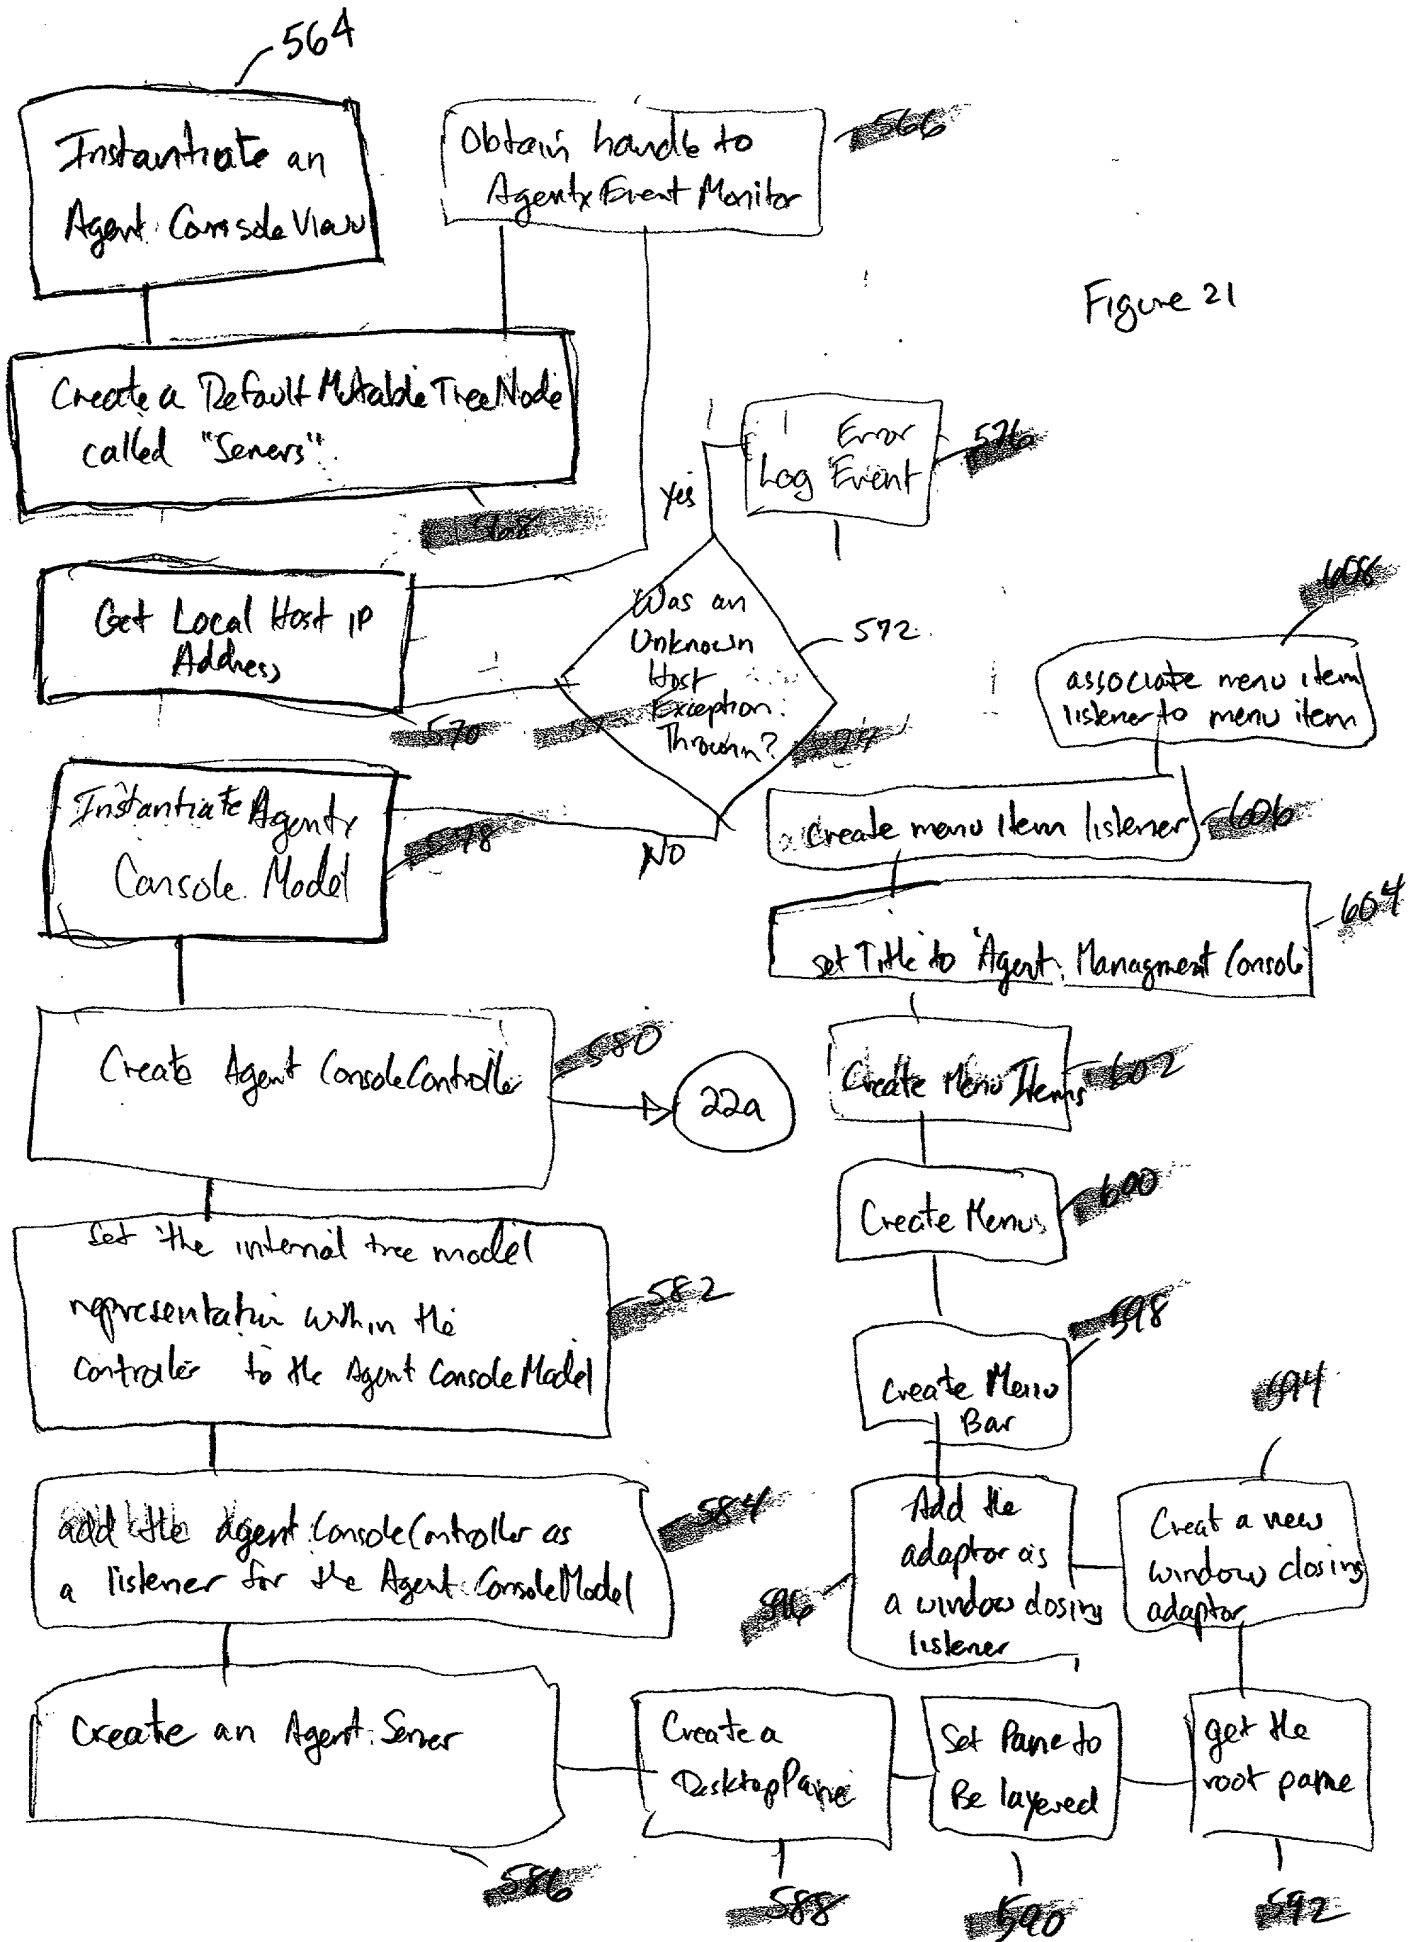 564
Instantiate an
Agent ConsoleView
Obtain handle to
Agentx Event Monitor
566
Figure 21
Create a Default MutableTreeNode
called "Servers"
568
Error
Log Event
576
Yes
Get Local Host IP
Address
570
Was an
Unknown
Host
Exception
Thrown?
572
574
No
608
associate menu item
listener to menu item
Instantiate Agentx
Console Model
578
create menu item listener
606
set Title to "Agent Managment Console
604
Create Agent ConsoleController
580
22a
Create Menu Items
602
Create Menus
600
Set the internal tree model
representation within the
controller to the Agent ConsoleModel
582
Create Menu
Bar
598
594
add the agent ConsoleController as
a listener for the Agent ConsoleModel
584
Add the
adaptor as
a window closing
listener
596
Creat a new
window closing
adaptor
Create an Agent Server
586
Create a
DesktopPane
588
Set Pane to
Be layered
590
get the
root pane
592